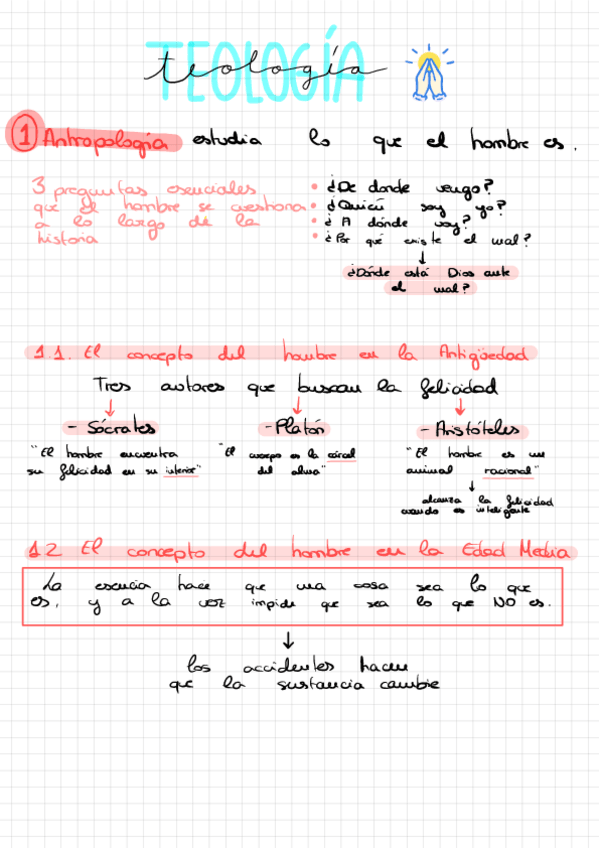 TEOLOGÍA
teología
1 Antropología estudia lo que el hombre es.
3 preguntas esenciales
que el hombre se cuestiona
a lo largo de la
historia
• ¿De donde vengo?
• ¿Quién soy yo?
• ¿A dónde voy?
• ¿Por qué existe el mal?
↓
¿Dónde está Dios ante
el mal?
1.1. El concepto del hombre en la Antigüedad
Tres autores que buscan la felicidad
- Sócrates
"El hombre encuentra
su felicidad en su interior"
- Platón
"El cuerpo es la cárcel
del alma"
- Aristóteles
"El hombre es un
animal racional"
↓
alcanza la felicidad
cuando es inteligente
1.2 El concepto del hombre en la Edad Media
La esencia hace que una cosa sea lo que
es, y a la vez impide que sea lo que NO es.
↓
los accidentes hacen
que la sustancia cambie